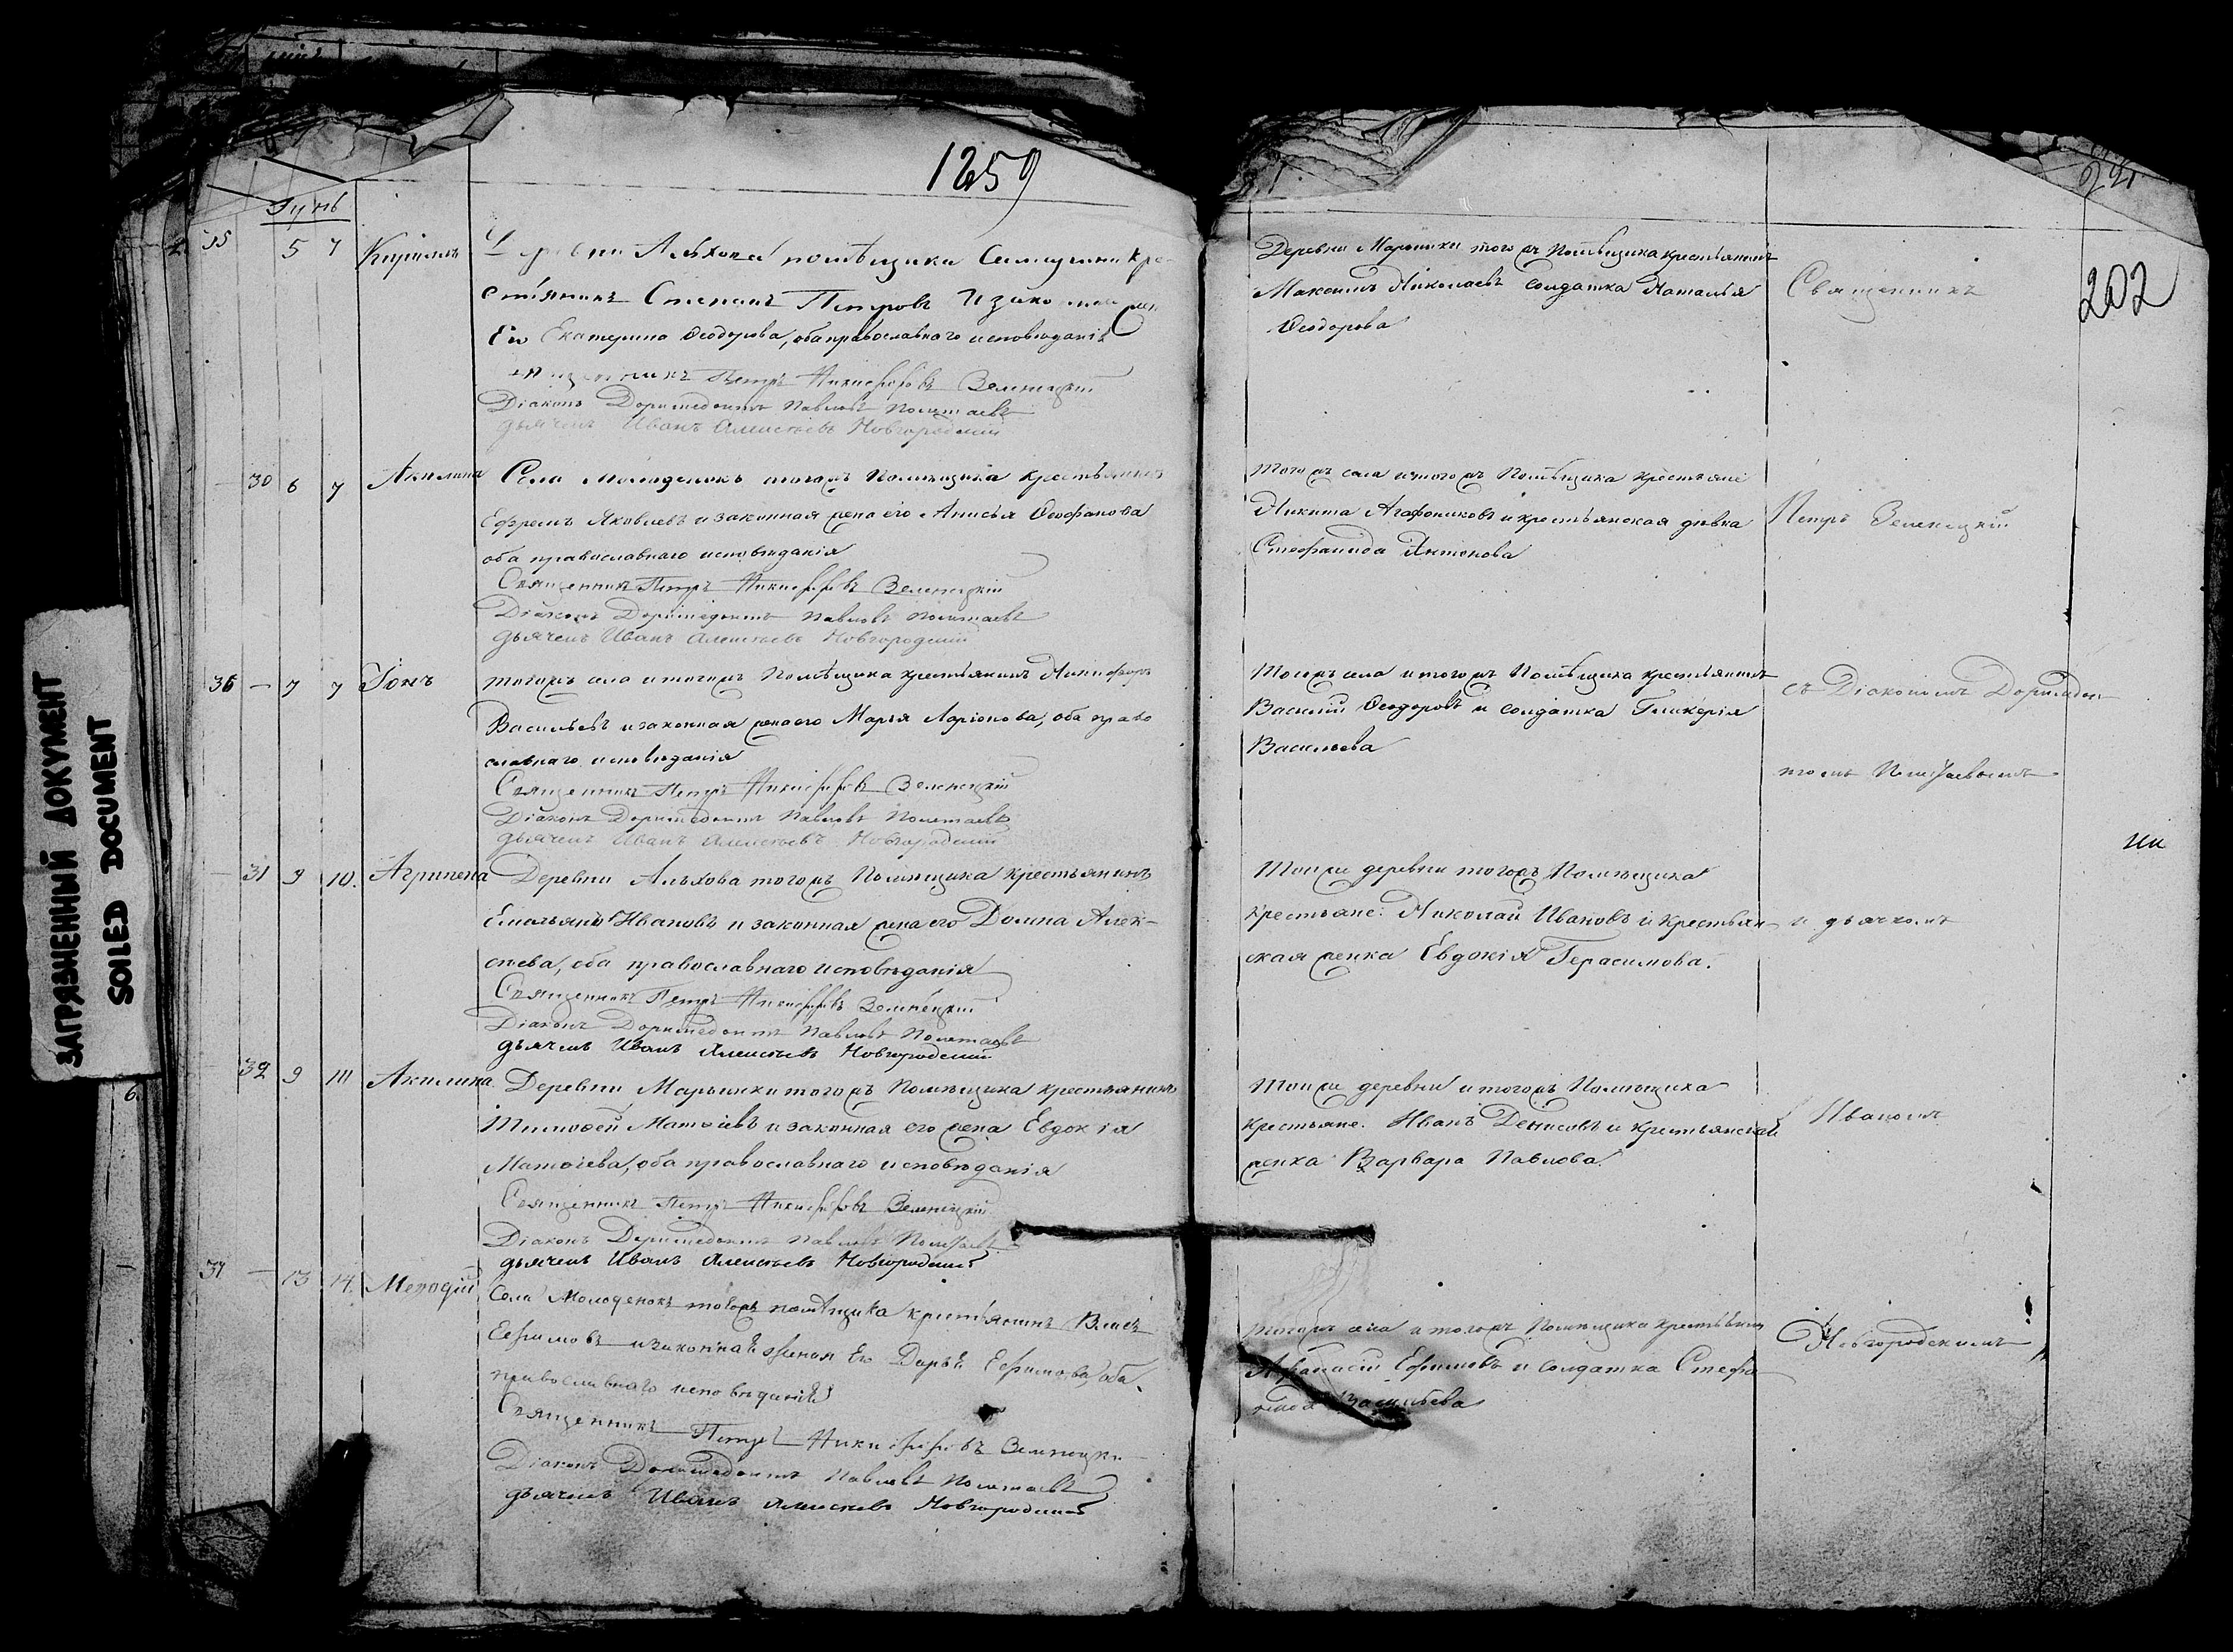 1259
202
Іунь
35 5 7 Кирилъ
Деревни Альхова помѣщика Самарина Кре-
стьянинъ Степанъ Петровъ и законная жена
Его Екатерина Ѳеодорова, оба православнаго исповѣданія
Священникъ Петръ Никифоровъ Зеленецкій
Діаконъ Доримедонтъ Павловъ Полетаевъ
дьячекъ Иванъ Алексѣевъ Новгородскій
Деревни Марьинки тогожъ Помѣщика крестьянинъ
Максимъ Николаевъ солдатка Наталья
Ѳеодорова
Священникъ
30 6 7 Акилина
Села Молоденокъ тогожъ Помѣщика крестьянинъ
Ефремъ Яковлевъ и законная жена его Анисья Ѳеофанова
оба православнаго исповѣданія
Священникъ Петръ Никифоровъ Зеленецкій
Діаконъ Доримедонтъ Павловъ Полетаевъ
дьячекъ Иванъ Алексѣевъ Новгородскій
Тогожъ села и тогожъ Помѣщика крестьяне
Никита Агафониковъ и крестьянская дѣвка
Стефанида Антонова
Петръ Зеленецкій
36 — 7 7 Іонъ
тогожъ села и тогожъ Помѣщика крестьянинъ Никифоръ
Васильевъ и законная жена его Марья Ларіонова, оба право
славнаго исповѣданія
Священникъ Петръ Никифоровъ Зеленецкій
Діаконъ Доримедонтъ Павловъ Полетаевъ
дьячекъ Иванъ Алексѣевъ Новгородскій
Тогожъ села и тогожъ Помѣщика крестьянинъ
Василій Ѳеодоровъ и солдатка Гликерія
Васильева
съ Діакономъ Доримедон-
томъ Полетаевымъ
31 9 10. Агрипена
Деревни Альхова тогожъ Помѣщика крестьянинъ
Емельянъ Ивановъ и законная жена его Домна Алек-
сѣева, оба православнаго исповѣданія
Священникъ Петръ Никифоровъ Зеленецкій
Діаконъ Доримедонтъ Павловъ Полетаевъ
дьячекъ Иванъ Алексѣевъ Новгородскій
Тойже деревни тогожъ Помѣщика
крестьяне: Николай Ивановъ и крестьян-
ская женка Евдокія Герасимова.
и дьячкомъ
32 9 Акилина
Деревни Марьинки тогожъ Помѣщика крестьянинъ
Тимоѳей Матѳіевъ и законная его жена Евдокія
Матѳіева, оба православнаго исповѣданія
Священникъ Петръ Никифоровъ Зеленецкій
Діаконъ Доримедонтъ Павловъ Полетаевъ
дьячекъ Иванъ Алексѣевъ Новгородскій
Тойже деревни и тогожъ Помѣщика
крестьяне: Иванъ Денисовъ и крестьянская
женка Варвара Павлова.
Иваномъ
37 — 13 14. Меѳодій
Села Молоденокъ тогожъ помѣщика крестьянинъ Власъ
Ефимовъ и законная жена Его Дарья Ефимова, оба
православнаго исповѣданія
Священникъ Петръ Никифоровъ Зеленецкій
Діаконъ Доримедонтъ Павловъ Полетаевъ
дьячекъ Иванъ Алексѣевъ Новгородскій
Тогожъ села и тогожъ Помѣщика крестьянинъ
Афанасій Ефимовъ и солдатка Стефа
нида Васильева
Новгородскимъ
ЗАГРЯЗНЕННЫЙ ДОКУМЕНТ
SOILED DOCUMENT